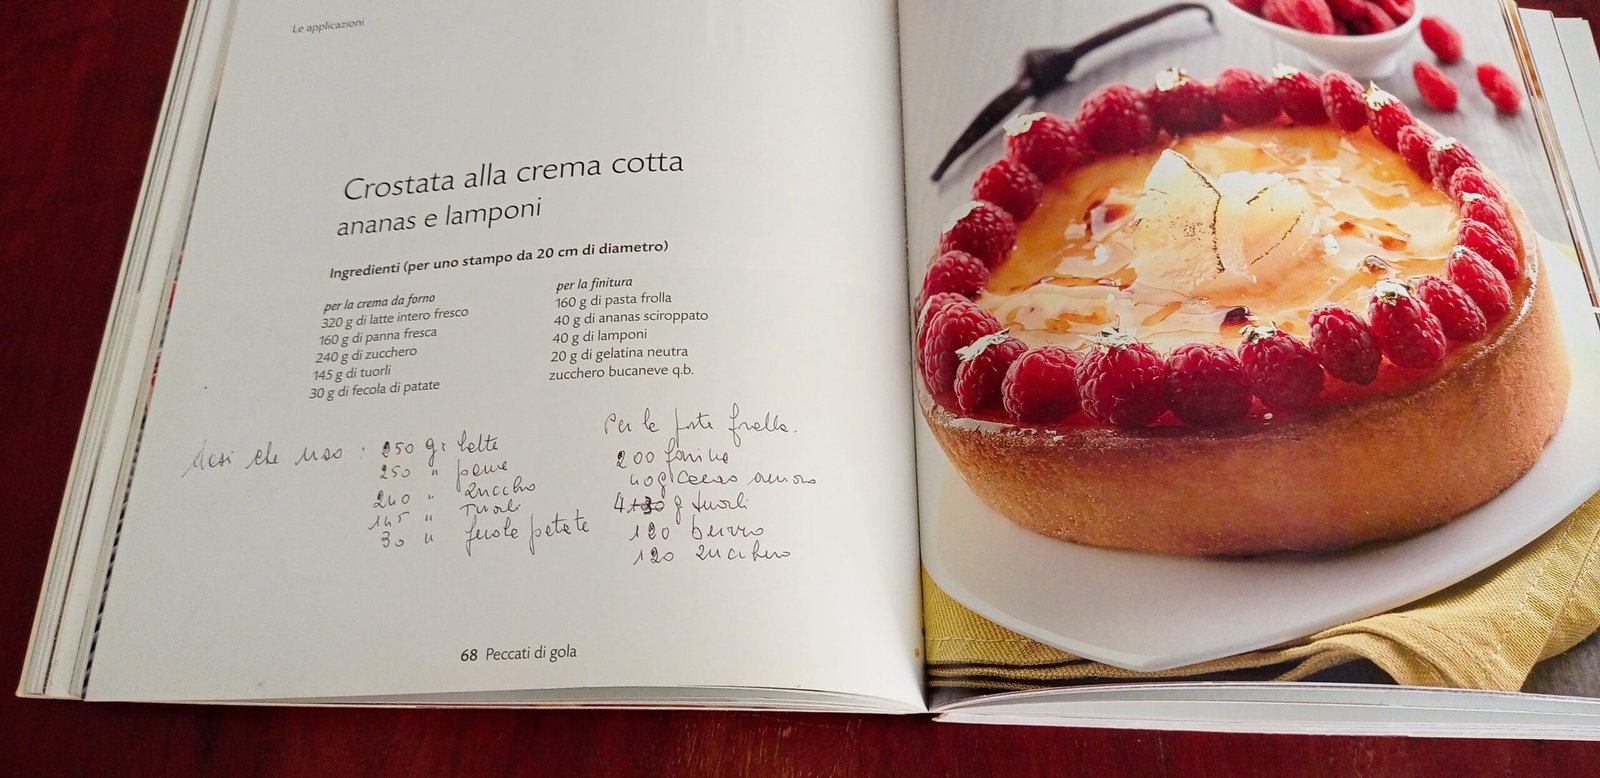 Le applicazioni
Crostata alla crema cotta
ananas e lamponi
Ingredienti (per uno stampo da 20 cm di diametro)
per la crema da forno
320 g di latte intero fresco
160 g di panna fresca
240 g di zucchero
145 g di tuorli
30 g di fecola di patate
per la finitura
160 g di pasta frolla
40 g di ananas sciroppato
40 g di lamponi
20 g di gelatina neutra
zucchero bucaneve q.b.
dosi che uso : 250 gr latte
250 " panna
240 " zucchero
145 " Tuorli
30 " fecola patate
Per la pasta frolla.
200 farina
40 g cacao amaro
g tuorli
120 burro
120 zucchero
68 Peccati di gola